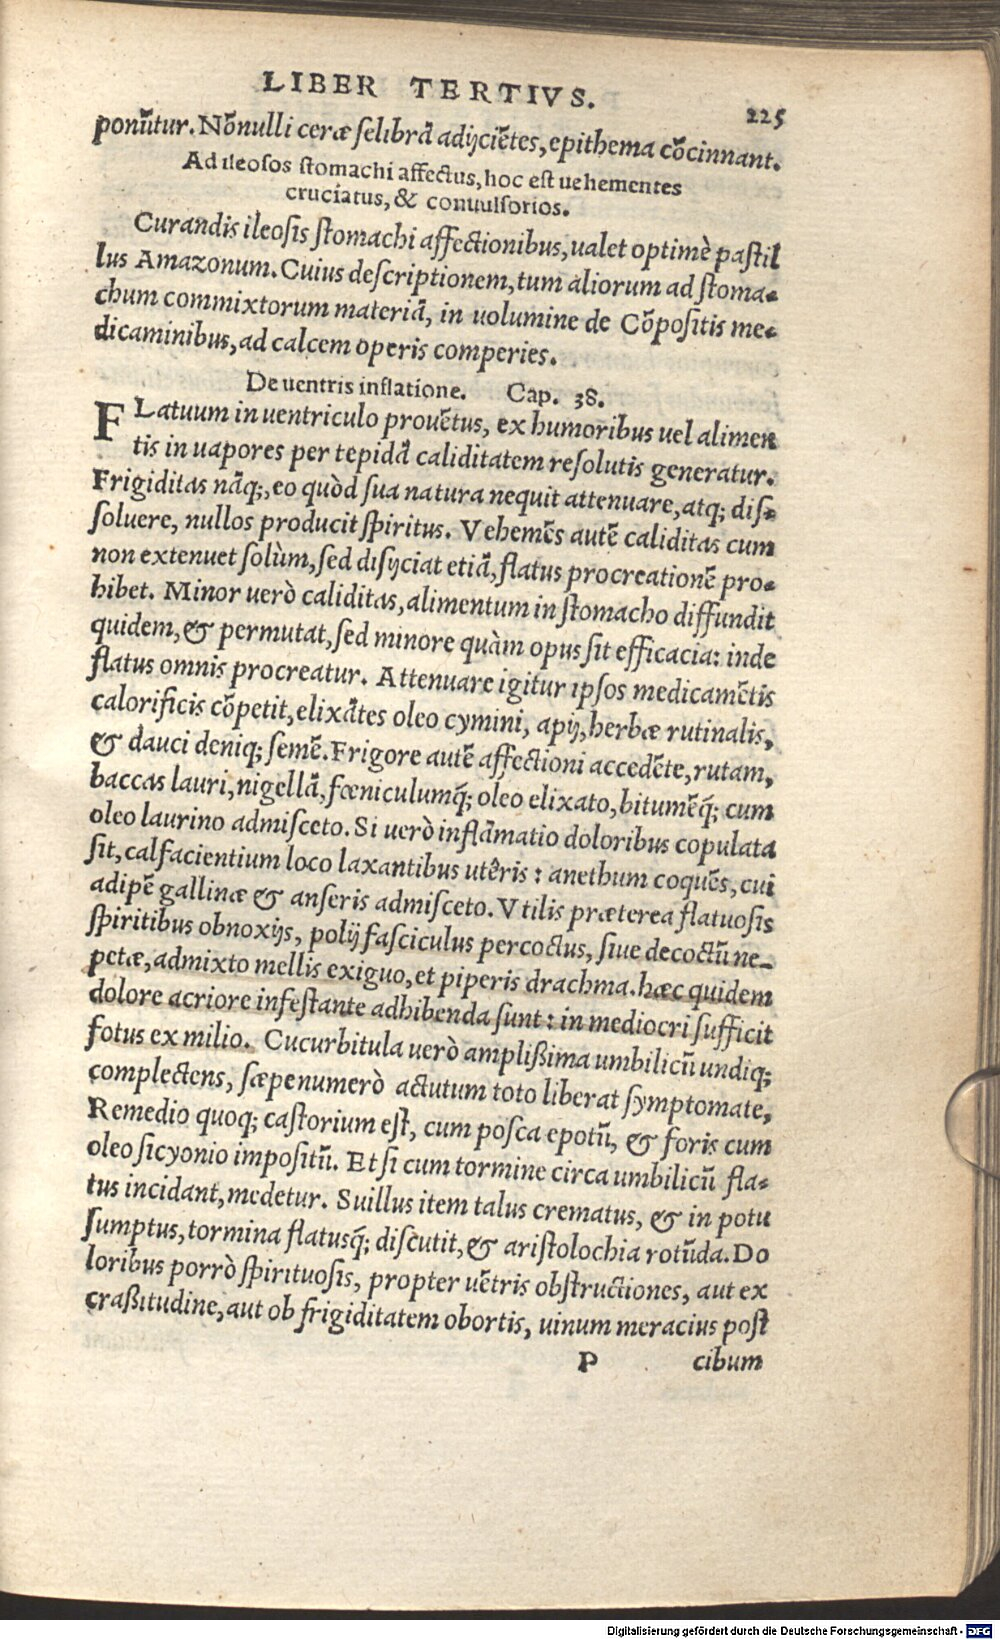 LIBER TERTIVS. 225
ponūtur. Nōnulli ceræ selibrā adijciētes, epithema cōcinnant.
Ad ileosos stomachi affectus, hoc est uehementes
cruciatus, & conuulsorios.
Curandis ileosis stomachi affectionibus, ualet optimè pastil
lus Amazonum. Cuius descriptionem, tum aliorum ad stoma-
chum commixtorum materiā, in uolumine de Cōpositis me-
dicaminibus, ad calcem operis comperies.
De uentris inflatione. Cap. 38.
FLatuum in uentriculo prouētus, ex humoribus uel alimen
tis in uapores per tepidā caliditatem resolutis generatur.
Frigiditas nāq;, eo quòd sua natura nequit attenuare, atq; dis-
soluere, nullos producit spiritus. Vehemēs autē caliditas cum
non extenuet solùm, sed disijciat etiā, flatus procreationē pro-
hibet. Minor uerò caliditas, alimentum in stomacho diffundit
quidem, & permutat, sed minore quàm opus sit efficacia: inde
flatus omnis procreatur. Attenuare igitur ipsos medicamētis
calorificis cōpetit, elixātes oleo cymini, apij, herbæ rutinalis,
& dauci deniq; semē. Frigore autē affectioni accedēte, rutam,
baccas lauri, nigellā, fœniculumq́; oleo elixato, bitumēq́; cum
oleo laurino admisceto. Si uerò inflāmatio doloribus copulata
sit, calfacientium loco laxantibus utêris: anethum coquēs, cui
adipē gallinæ & anseris admisceto. Vtilis præterea flatuosis
spiritibus obnoxijs, polij fasciculus percoctus, siue decoctū ne-
petæ, admixto mellis exiguo, et piperis drachma. hæc quidem
dolore acriore infestante adhibenda sunt: in mediocri sufficit
fotus ex milio. Cucurbitula uerò amplißima umbilicū undiq;
complectens, sæpenumerò actutum toto liberat symptomate,
Remedio quoq; castorium est, cum posca epotū, & foris cum
oleo sicyonio impositū. Et si cum tormine circa umbilicū fla-
tus incidant, medetur. Suillus item talus crematus, & in potu
sumptus, tormina flatusq́; discutit, & aristolochia rotūda. Do
loribus porrò spirituosis, propter uētris obstructiones, aut ex
craßitudine, aut ob frigiditatem obortis, uinum meracius post
P cibum
Digitalisierung gefördert durch die Deutsche Forschungsgemeinschaft - DFG